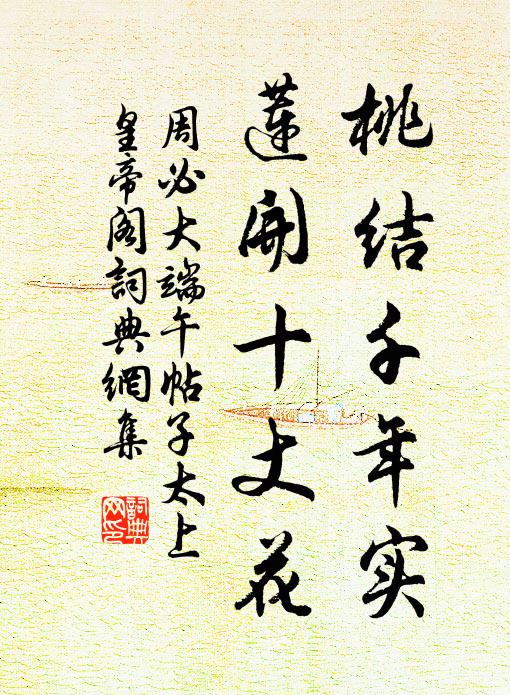 桃结千年实
莲开十丈花
周必大端午帖子太上
皇帝阁詞典網集
詞典网印